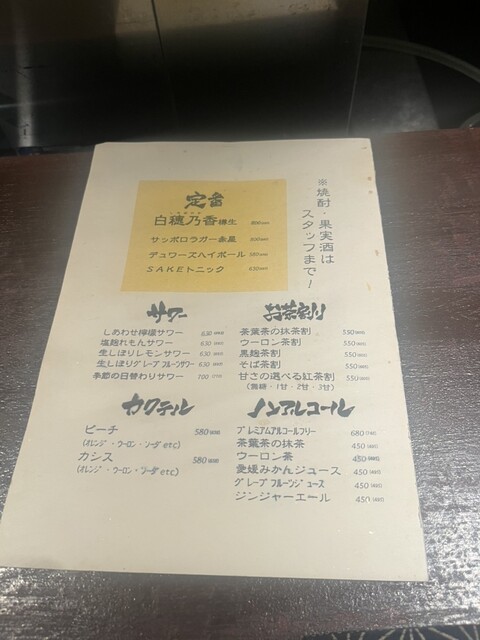 ※焼酎・果実酒は
スタッフまで！
定番
白穂乃香樽生
サッポロラガー赤星
デュワーズハイボール 580
SAKEトニック 630
サワー
しあわせ檸檬サワー 630
塩麹れもんサワー 630
生しぼりレモンサワー 630
生しぼりグレープフルーツサワー 630
季節の日替わりサワー 700
お茶割り
茶葉茶の抹茶割 550
ウーロン茶割 550
黒麹茶割 550
そば茶割 550
甘さの選べる紅茶割 550
(無糖・1甘・2甘・3甘)
カクテル
ピーチ 580
(オレンジ・ウーロン・ソーダetc)
カシス 580
(オレンジ・ウーロン・ソーダetc)
ノンアルコール
プレミアムアルコールフリー 680
茶葉茶の抹茶 450
ウーロン茶 450
愛媛みかんジュース 450
グレープフルーツジュース 450
ジンジャーエール 450